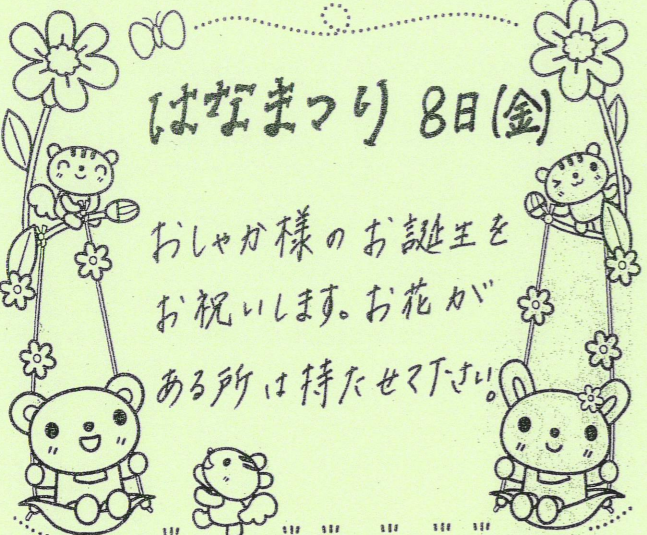 はなまつり 8日(金)
おしゃか様のお誕生を
お祝いします。お花が
ある所は持たせて下さい。